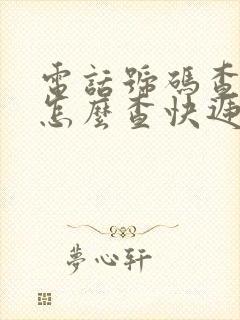 電話號碼查
怎麼查快遞
夢心軒